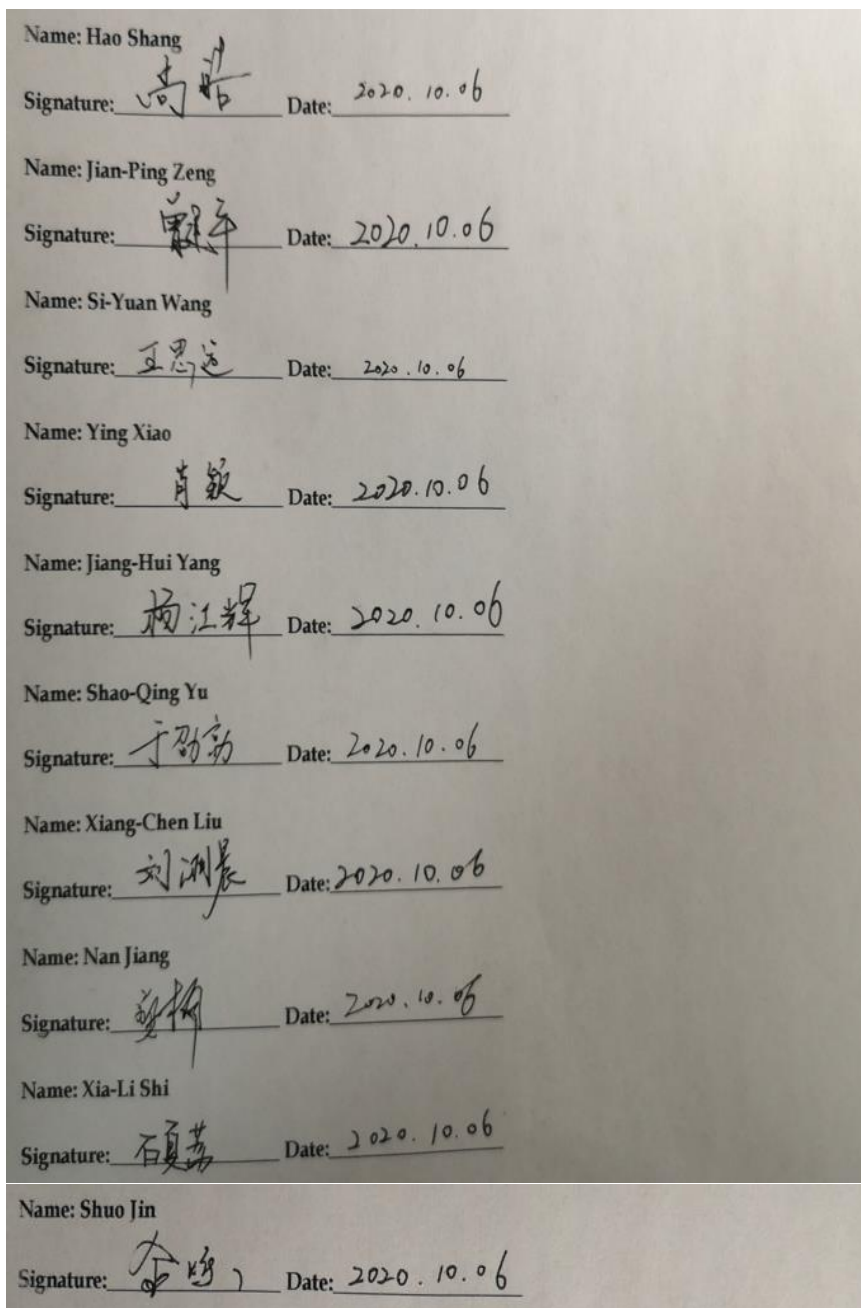 Name: Hao Shang
Signature: 尚皓 Date: 2020.10.06
Name: Jian-Ping Zeng
Signature: 曾建平 Date: 2020.10.06
Name: Si-Yuan Wang
Signature: 王思远 Date: 2020.10.06
Name: Ying Xiao
Signature: 肖颖 Date: 2020.10.06
Name: Jiang-Hui Yang
Signature: 杨江辉 Date: 2020.10.06
Name: Shao-Qing Yu
Signature: 于劭 Date: 2020.10.06
Name: Xiang-Chen Liu
Signature: 刘湘晨 Date: 2020.10.06
Name: Nan Jiang
Signature: Date: 2020.10.06
Name: Xia-Li Shi
Signature: 石夏荔 Date: 2020.10.06
Name: Shuo Jin
Signature: 金 Date: 2020.10.06